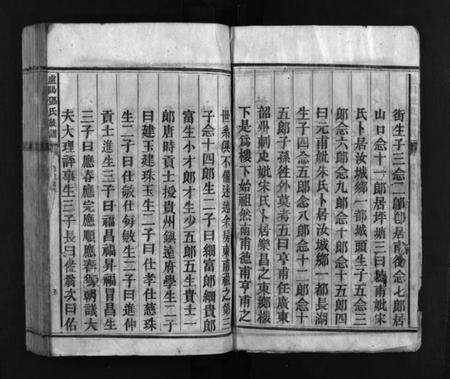 街生子三念二郎郎居甫後念七郎居
山口念十一郎居坪塘三曰甫甫妣宋
氏卜居汝城鄉一都城頭生子五念三
郎念六郎念九郎念十郎念十五郎四
曰元甫妣朱氏卜居汝城鄉一都長湖
生子四念四郎念五郎念八郎念十二郎
五郎子孫徃外莫考五曰亨甫任廣東
韶州刺史妣宋氏卜居樂昌之東鄉樓
下是為樓下始祖然南甫德甫亨甫之
世系俱不備述述全房東甫祖之第三
子念十四郎生二子曰細富郎細貴郎
富生小才郎才生四五郎五生貴士一
郎唐時貢士授貴州鎮遠府學生二子
曰建玉建珠玉生二子曰仕孝仕慈珠
生二子曰仕敏仕敏生二子曰進伸
貢士進生三子曰福昌福昇福冒昌生
三子曰應春應完應順應春朝議大
夫大理評事生三子長曰佐翁次曰佑